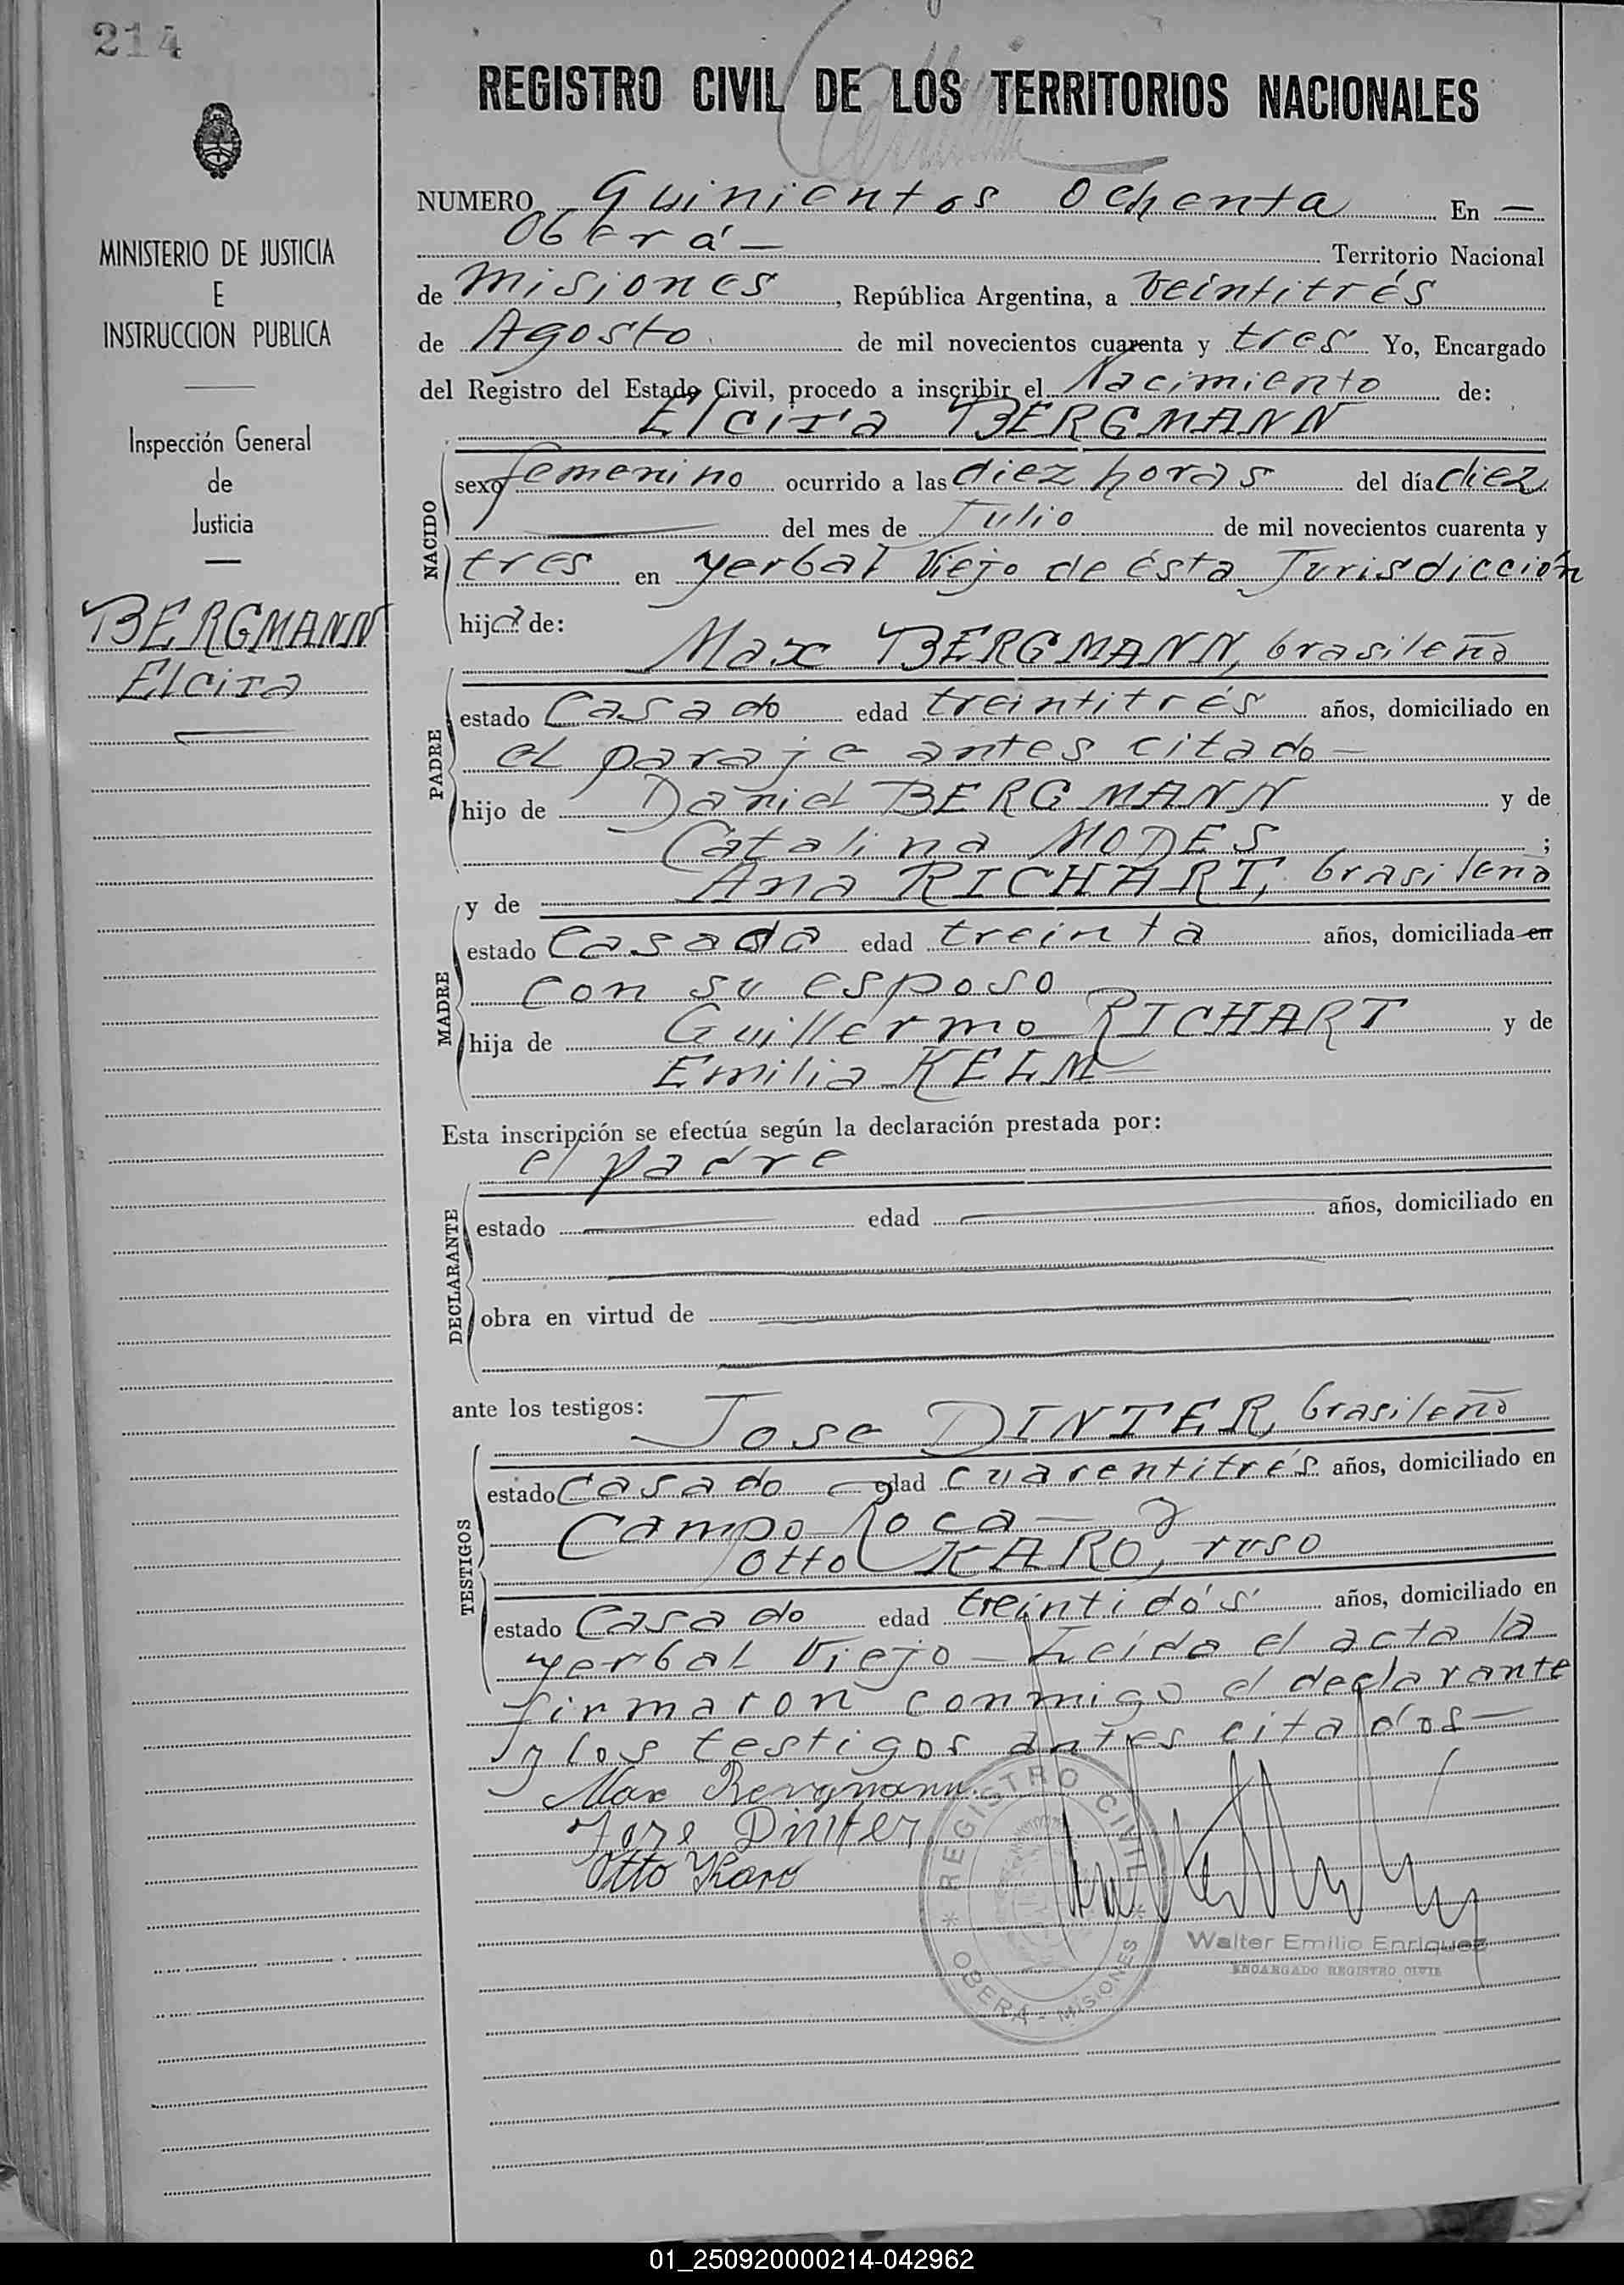 214
REGISTRO CIVIL DE LOS TERRITORIOS NACIONALES
MINISTERIO DE JUSTICIA
E
INSTRUCCION PUBLICA
Inspección General
de
Justicia
BERGMANN
Elcira
NUMERO Quinientos Ochenta En —
Oberá — Territorio Nacional
de Misiones, República Argentina, a veintitrés
de Agosto de mil novecientos cuarenta y tres Yo, Encargado
del Registro del Estado Civil, procedo a inscribir el Nacimiento de:
Elcira BERGMANN
NACIDO
sexo femenino ocurrido a las diez horas del día diez
— del mes de Julio de mil novecientos cuarenta y
tres en yerbal Viejo de ésta Jurisdicción
hija de:
Max BERGMANN, brasileño
PADRE
estado Casado edad treintitrés años, domiciliado en
el paraje antes citado —
hijo de Daniel BERGMANN y de
Catalina MODES ;
y de Ana RICHART, brasileña
MADRE
estado Casada edad treinta años, domiciliada en
con su esposo
hija de Guillermo RICHART y de
Emilia KELM
Esta inscripción se efectúa según la declaración prestada por:
el padre
DECLARANTE
estado — edad — años, domiciliado en
obra en virtud de
ante los testigos:
Jose DINTER, brasileño
TESTIGOS
estado casado — edad cuarentitrés años, domiciliado en
Campo Roca — y
Otto KARO, ruso
estado Casado edad treintidós años, domiciliado en
yerbal Viejo — Leída el acta la
firmaron conmigo el declarante
y los testigos antes citados —
Max Bergmann
Jose Dinter
Otto Karo
* REGISTRO CIVIL *
OBERÁ - MISIONES
Walter Emilio Enriquez
ENCARGADO REGISTRO CIVIL
01_250920000214-042962